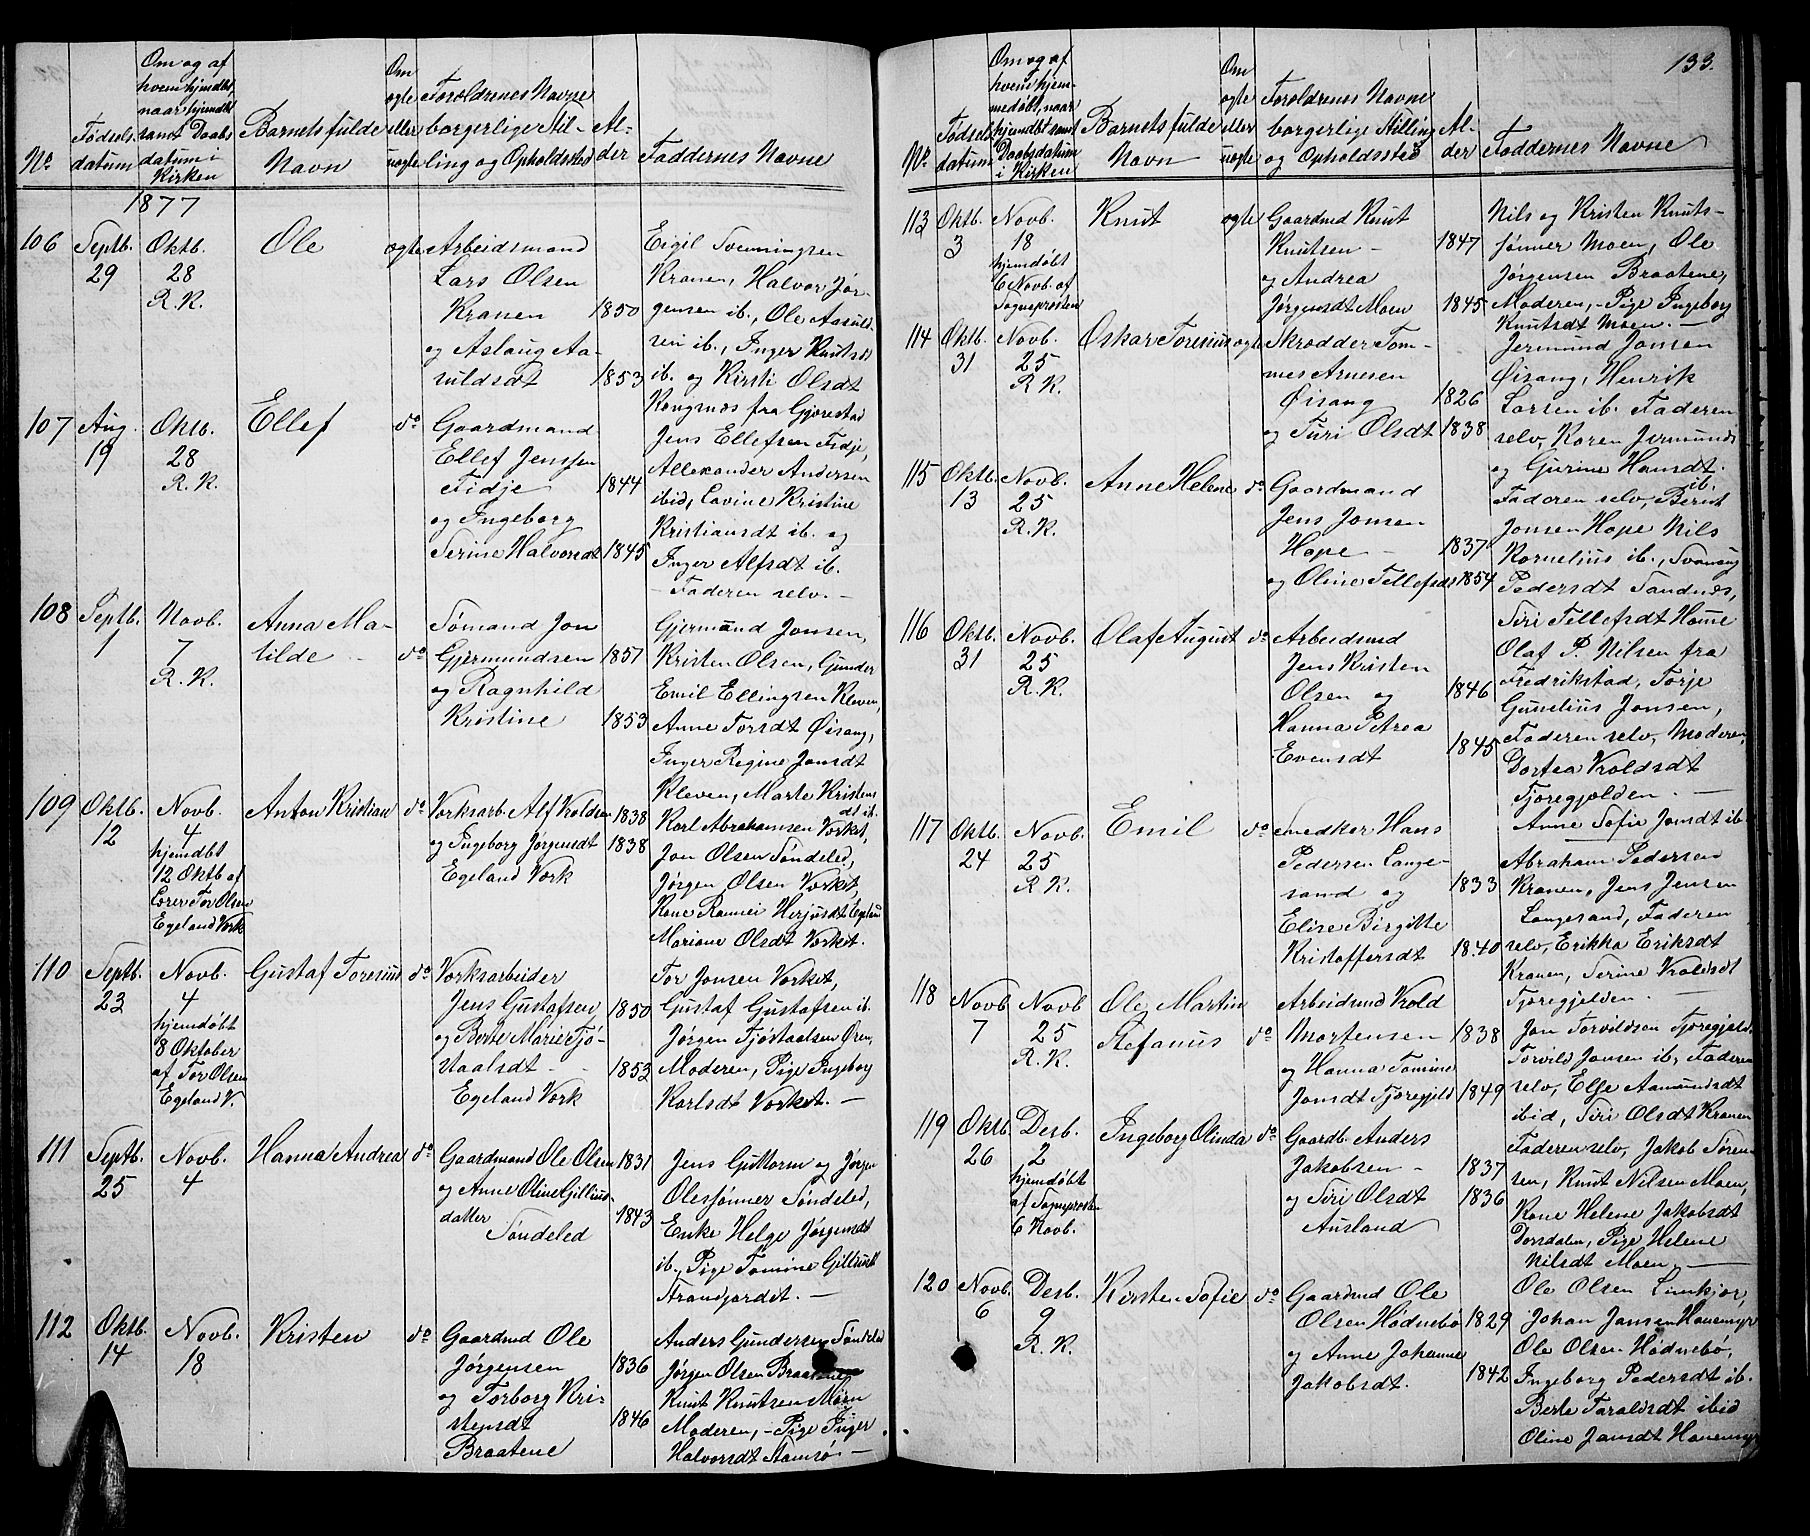 Nr
Fødsels
datum
Om og af
hvem hjemdbt,
naar hjemdbt
samt Daabs
datum i
Kirken
Barnets fulde
Navn
Om
ægte
eller
uægte
Forældrenes Navne
borgerlige Stil-
ling og Opholdssted
Al-
der
Faddernes Navne
1877
106
Septb.
29
Oktb.
28
R. K.
Ole
ægte
Arbeidsmand
Lars Olsen
Kranen
og Aslaug Aa-
suldsdt
1850
1853
Eigil Svenningsen
Kranen, Halvor Jør-
gensen ib., Ole Aasuld-
sen ib., Inger Knutsdt
ib. og Kirsti Olsdt
Kongsnæs fra Gjerestad
107
Aug.
19
Oktb.
28
R. K.
Ellef
do
Gaardmand
Ellef Jenssen
Fidje
og Ingeborg
Serine Halvorsdt
1844
1845
Jens Ellefsen Fidje,
Allexander Andersen
ibid, Lavine Kristine
Kristiansdt ib. og
Inger Alfsdt ib.
- Faderen selv. -
108
Septb.
1
Novb.
7
R. K.
Anna Ma-
tilde
do
Sømand Jon
Gjermundsen
og Ragnhild
Kristine
1851
1853
Gjermund Jonsen,
Kristen Olsen, Gunder
Emil Ellingsen Kleven,
Anne Torsdt Øisang,
Inger Regine Jonsdt
Kleven, Marte Kristens
dt ib.
109
Oktb.
12
Novb.
4
hjemdbt
12 Oktb af
Lærer Tor Olsen
Egeland Værk
Anton Kristian
do
Værksarb. Alf Vroldsen
og Ingeborg Jørgensdt
Egeland Værk
1838
1838
Karl Abrahamsen Værket,
Jon Olsen Søndeled,
Jørgen Olsen Værket,
Kone Ramei Herjusdt Egelund
Mariane Olsdt Værket.
110
Septb.
23
Novb.
4
hjemdøbt
8 Oktober
af Tor Olsen
Egeland V.
Gustaf Toresius
do
Værksarbeider
Jens Gustafsen
og Berte Marie Tjø-
staalsdt
Egeland Værk
1850
1853
Tor Jonsen Værket,
Gustaf Gustafsen ib.
Jørgen Tjøstaalsen Øren,
Moderen, Pige Ingeborg
Karlsdt Værket. -
111
Septb.
25
Novb.
4
Hanna Andrea
do
Gaardmand Ole Olsen
og Anne Oline Gilliuds-
datter
Søndeled
1831
1843
Jens Guttorm og Jørgen
Olessønner Søndeled,
Enke Helge Jørgensdt
ib., Pige Tomine Gilliusdt
Strandjordet. -
112
Oktb.
14
Novb.
18
Kristen
do
Gaardmd Ole
Jørgensen
og Torborg Kri-
stensdt
Braatene
1836
1846
Anders Gundersen Søndeled
Jørgen Olsen Braatene
Knut Knutsen Moen
Moderen, - Pige Inger
Halvorsdt Stamsø -
133.
Nr
Fødsels
datum
Om og af
hvem hjem-
medøbt, naar
hjemdbt samt
Daabsdatum
i Kirken
Barnets fulde
Navn
Om
ægte
eller
uægte
Forældrenes Navne
borgerlige Stilling
og Opholdssted
Al-
der
Faddernes Navne
113
Oktb.
3
Novb.
18
hjemdøbt
6 Novb. af
Sogneprosten
Knut
ægte
Gaardmd Knut
Knutsen -
og Andrea
Jørgensdt Moen
1847
1845
Nils og Kristen Knuts-
sønner Moen, Ole
Jørgensen Braatene,
Moderen, - Pige Ingeborg
Knutsdt Moen. -
114
Oktb.
31
Novb.
25
R. K.
Oskar Toresius
ægte
Skrædder Tom-
mes Arnesen
Øisang
og Turi Olsdt
1826
1838
Jermund Jonsen
Øisang, Henrik
Larsen ib. Faderen
selv, Karen Jermunds
og Gurine Hansdt.
ib.
115
Oktb.
13
Novb.
25
R. K.
Anne Helene
do
Gaardmand
Jens Jonsen
Hope -
og Oline Tellefsdt
1837
1854
Faderen selv, Bernt
Jonsen Hope Nils
Kornelius ib., Svanaug
Pedersdt Sandnæs,
Siri Tellefsdt Home
116
Oktb.
31
Novb.
25
R. K.
Olaf August
do
Arbeidsmd
Jens Kristen
Olsen og
Hanna Petrea
Evensdt
1846
1845
Olaf P. Nilsen fra
Fredrikstad, Torje
Gunelius Jonsen,
Faderen selv, Moderen,
Dortea Vroldsdt
Tjøregjolden. -
Anne Sofie Jonsdt ib.
117
Oktb.
24
Novb.
25
R. K.
Emil
do
Snedker Hans
Pedersen Lange-
sand og
Elise Birgitte
Kristoffersdt
1833
1840
Abraham Pedersen
Kranen, Jens Jensen
Langesand, Faderen
selv, Erikka Eriksdt
Kranen, Serine Vroldsdt
Tjøregjelden -
118
Novb
7
Novb
25
R. K.
Ole Martin
Stefanus
do
Arbeidsmd Vrold
Mortensen
og Hanna Tomine
Jonsdt Tjøregjeld
1838
1849
Jon Torvildsen Tjøregjeld.
Torvild Jonsen ib, Faderen
selv, Else Aamundsdt
ibid, Siri Olsdt Kranen
119
Oktb.
26
Desb.
2
hjemdøbt
af Sogneprosten
6 Novb.
Ingeborg Olinda
do
Gaardb. Anders
Jakobsen -
og Siri Olsdt
Ausland
1837
1836
Faderen selv, Jakob Søren-
sen, Knut Nilsen Moen,
Kone Helene Jakobsdt
Dorsdalen, Pige Helene
Nilsdt Moen. -
120
Novb.
6
Desb.
9
R. K.
Kirsten Sofie
do
Gaardmd Ole
Olsen Hødnebø
og Anne Johanne
Jakobsdt.
1829
1842
Ole Olsen Limkjær,
Johan Jansen Havemyr
Ole Olsen Hødnebø,
Ingeborg Pedersdt ib.
Berte Taraldsdt ibid
Oline Jansdt Havemyr